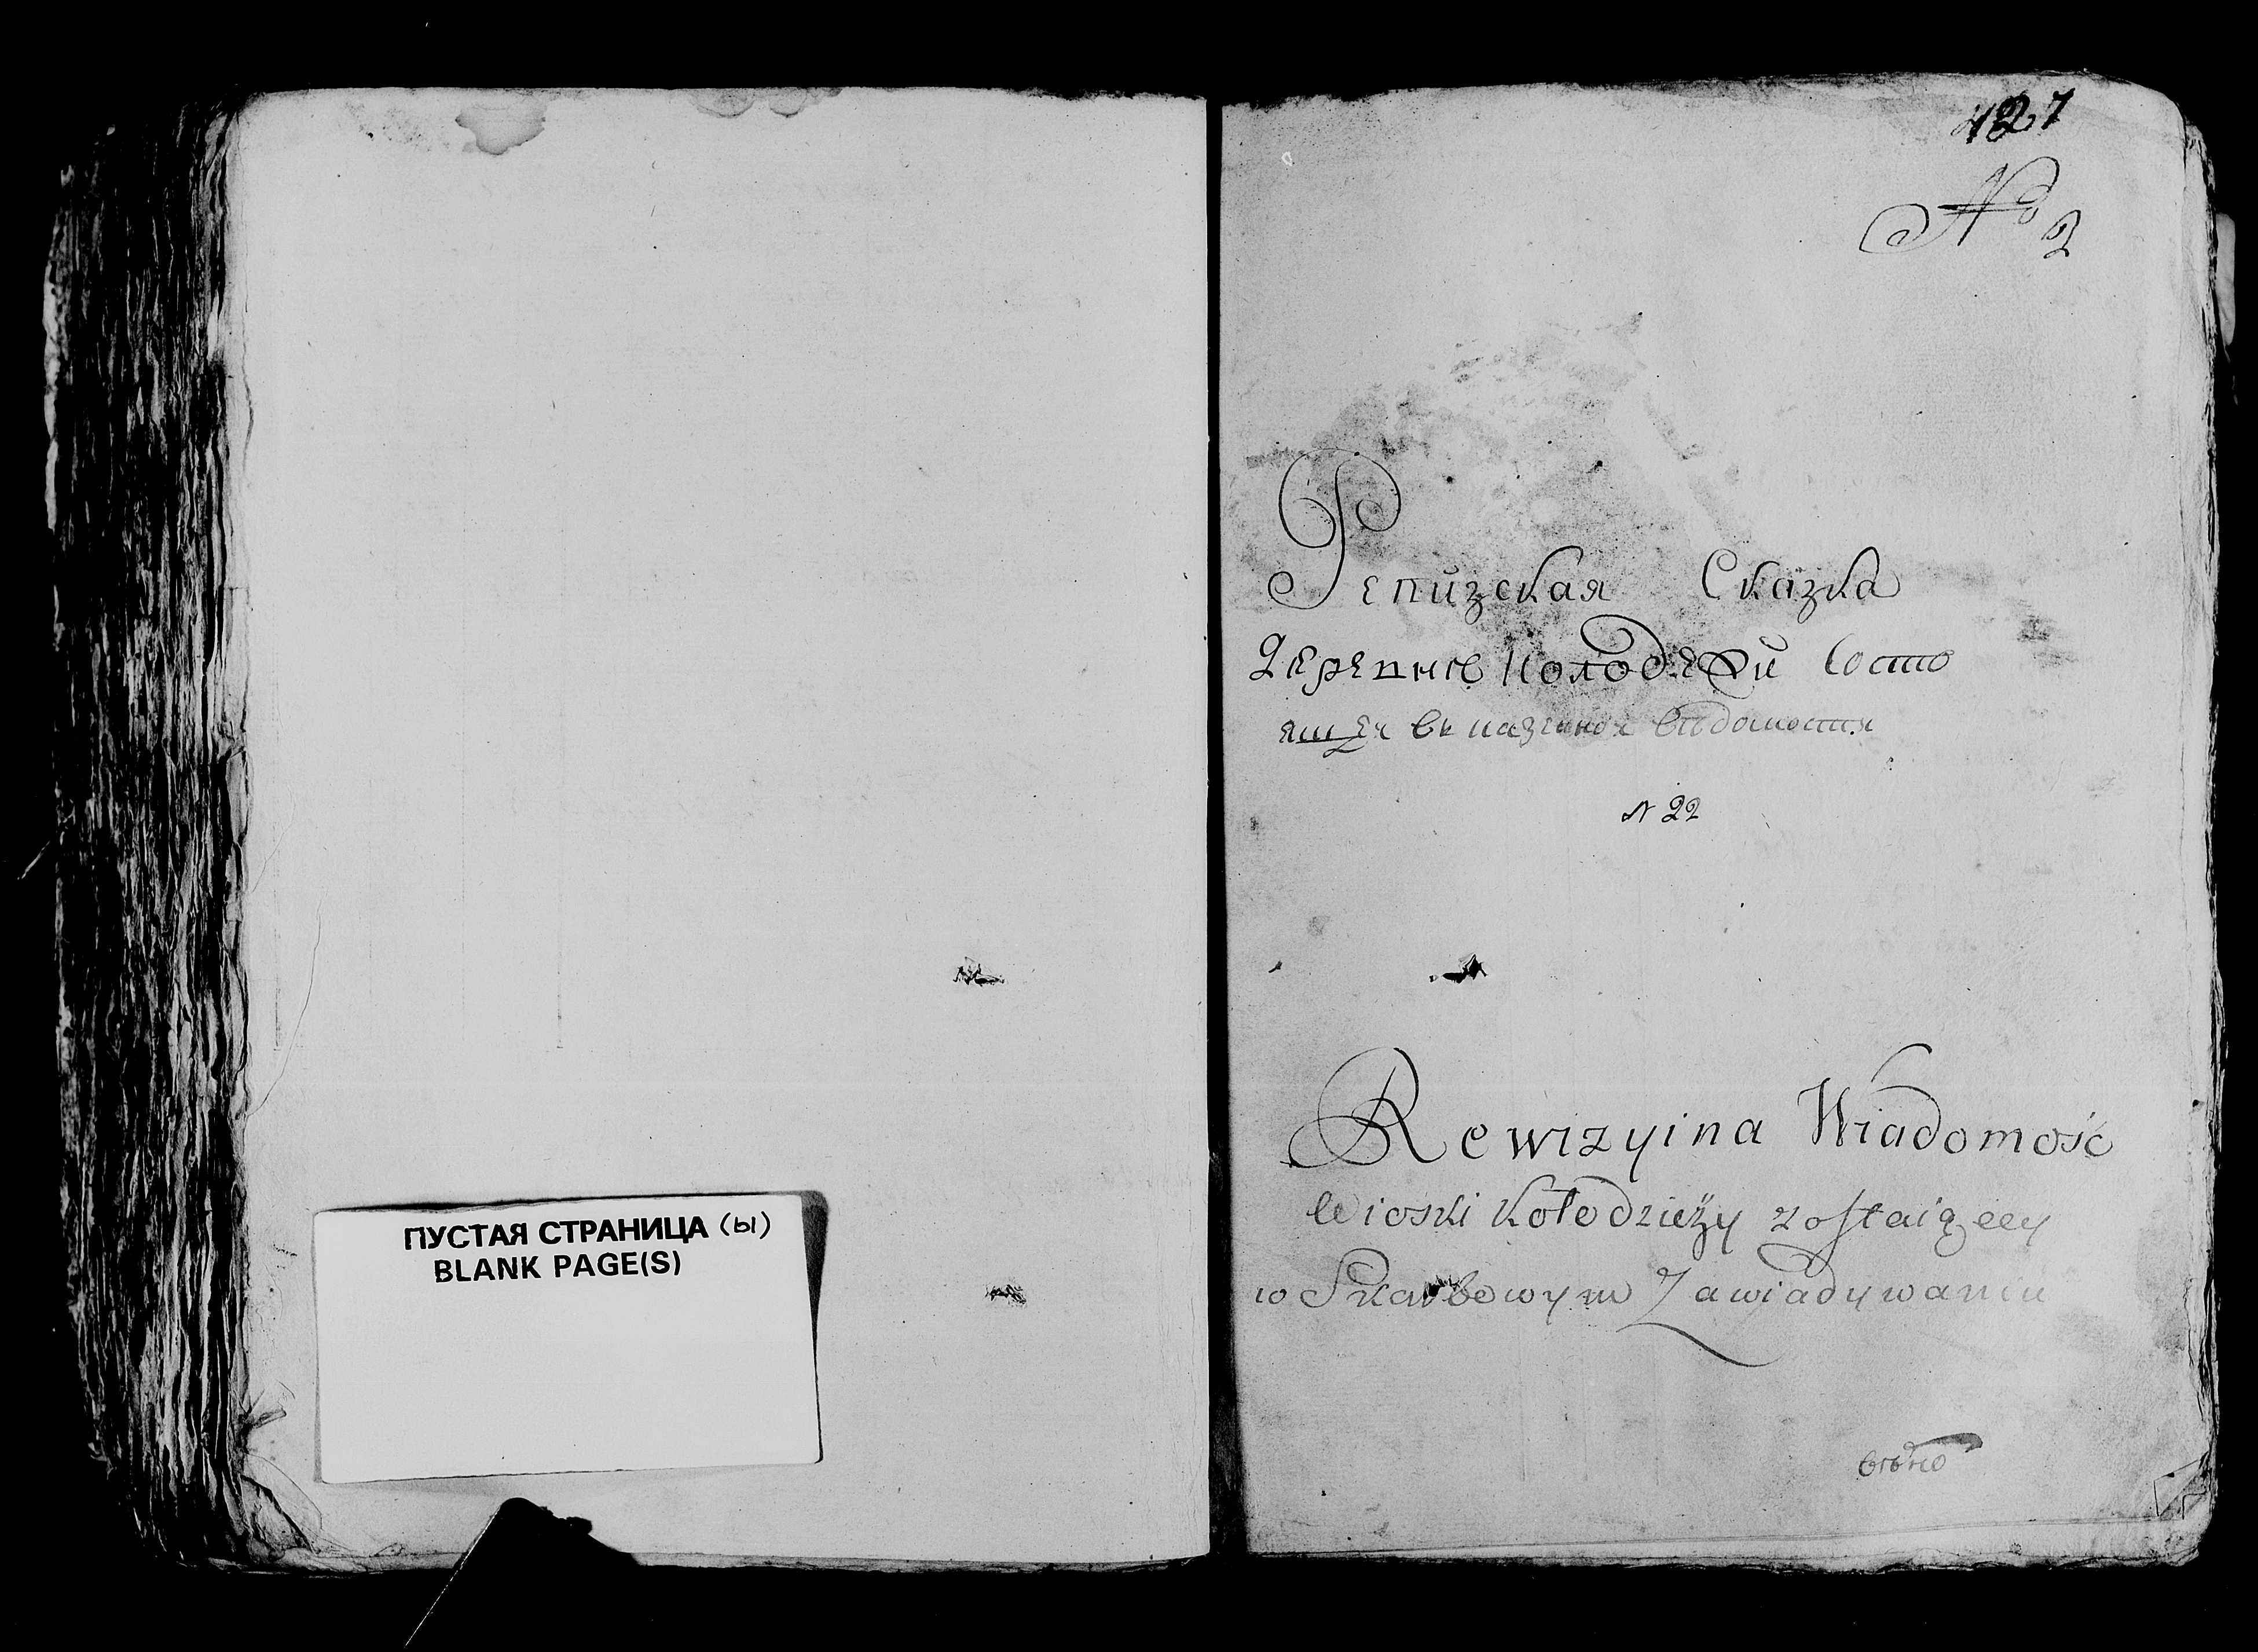 ПУСТАЯ СТРАНИЦА (ы)
BLANK PAGE(S)
427
No 2
Ревизская Сказка
деревне Колодежи Состо
ящея въ казенной ведомости
N 22
Rewizyina Wiadomość
Wioski Kołodzieży zostaiącey
w Skarbowym Zawiadywaniu